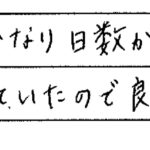 なり日数か
いたので良